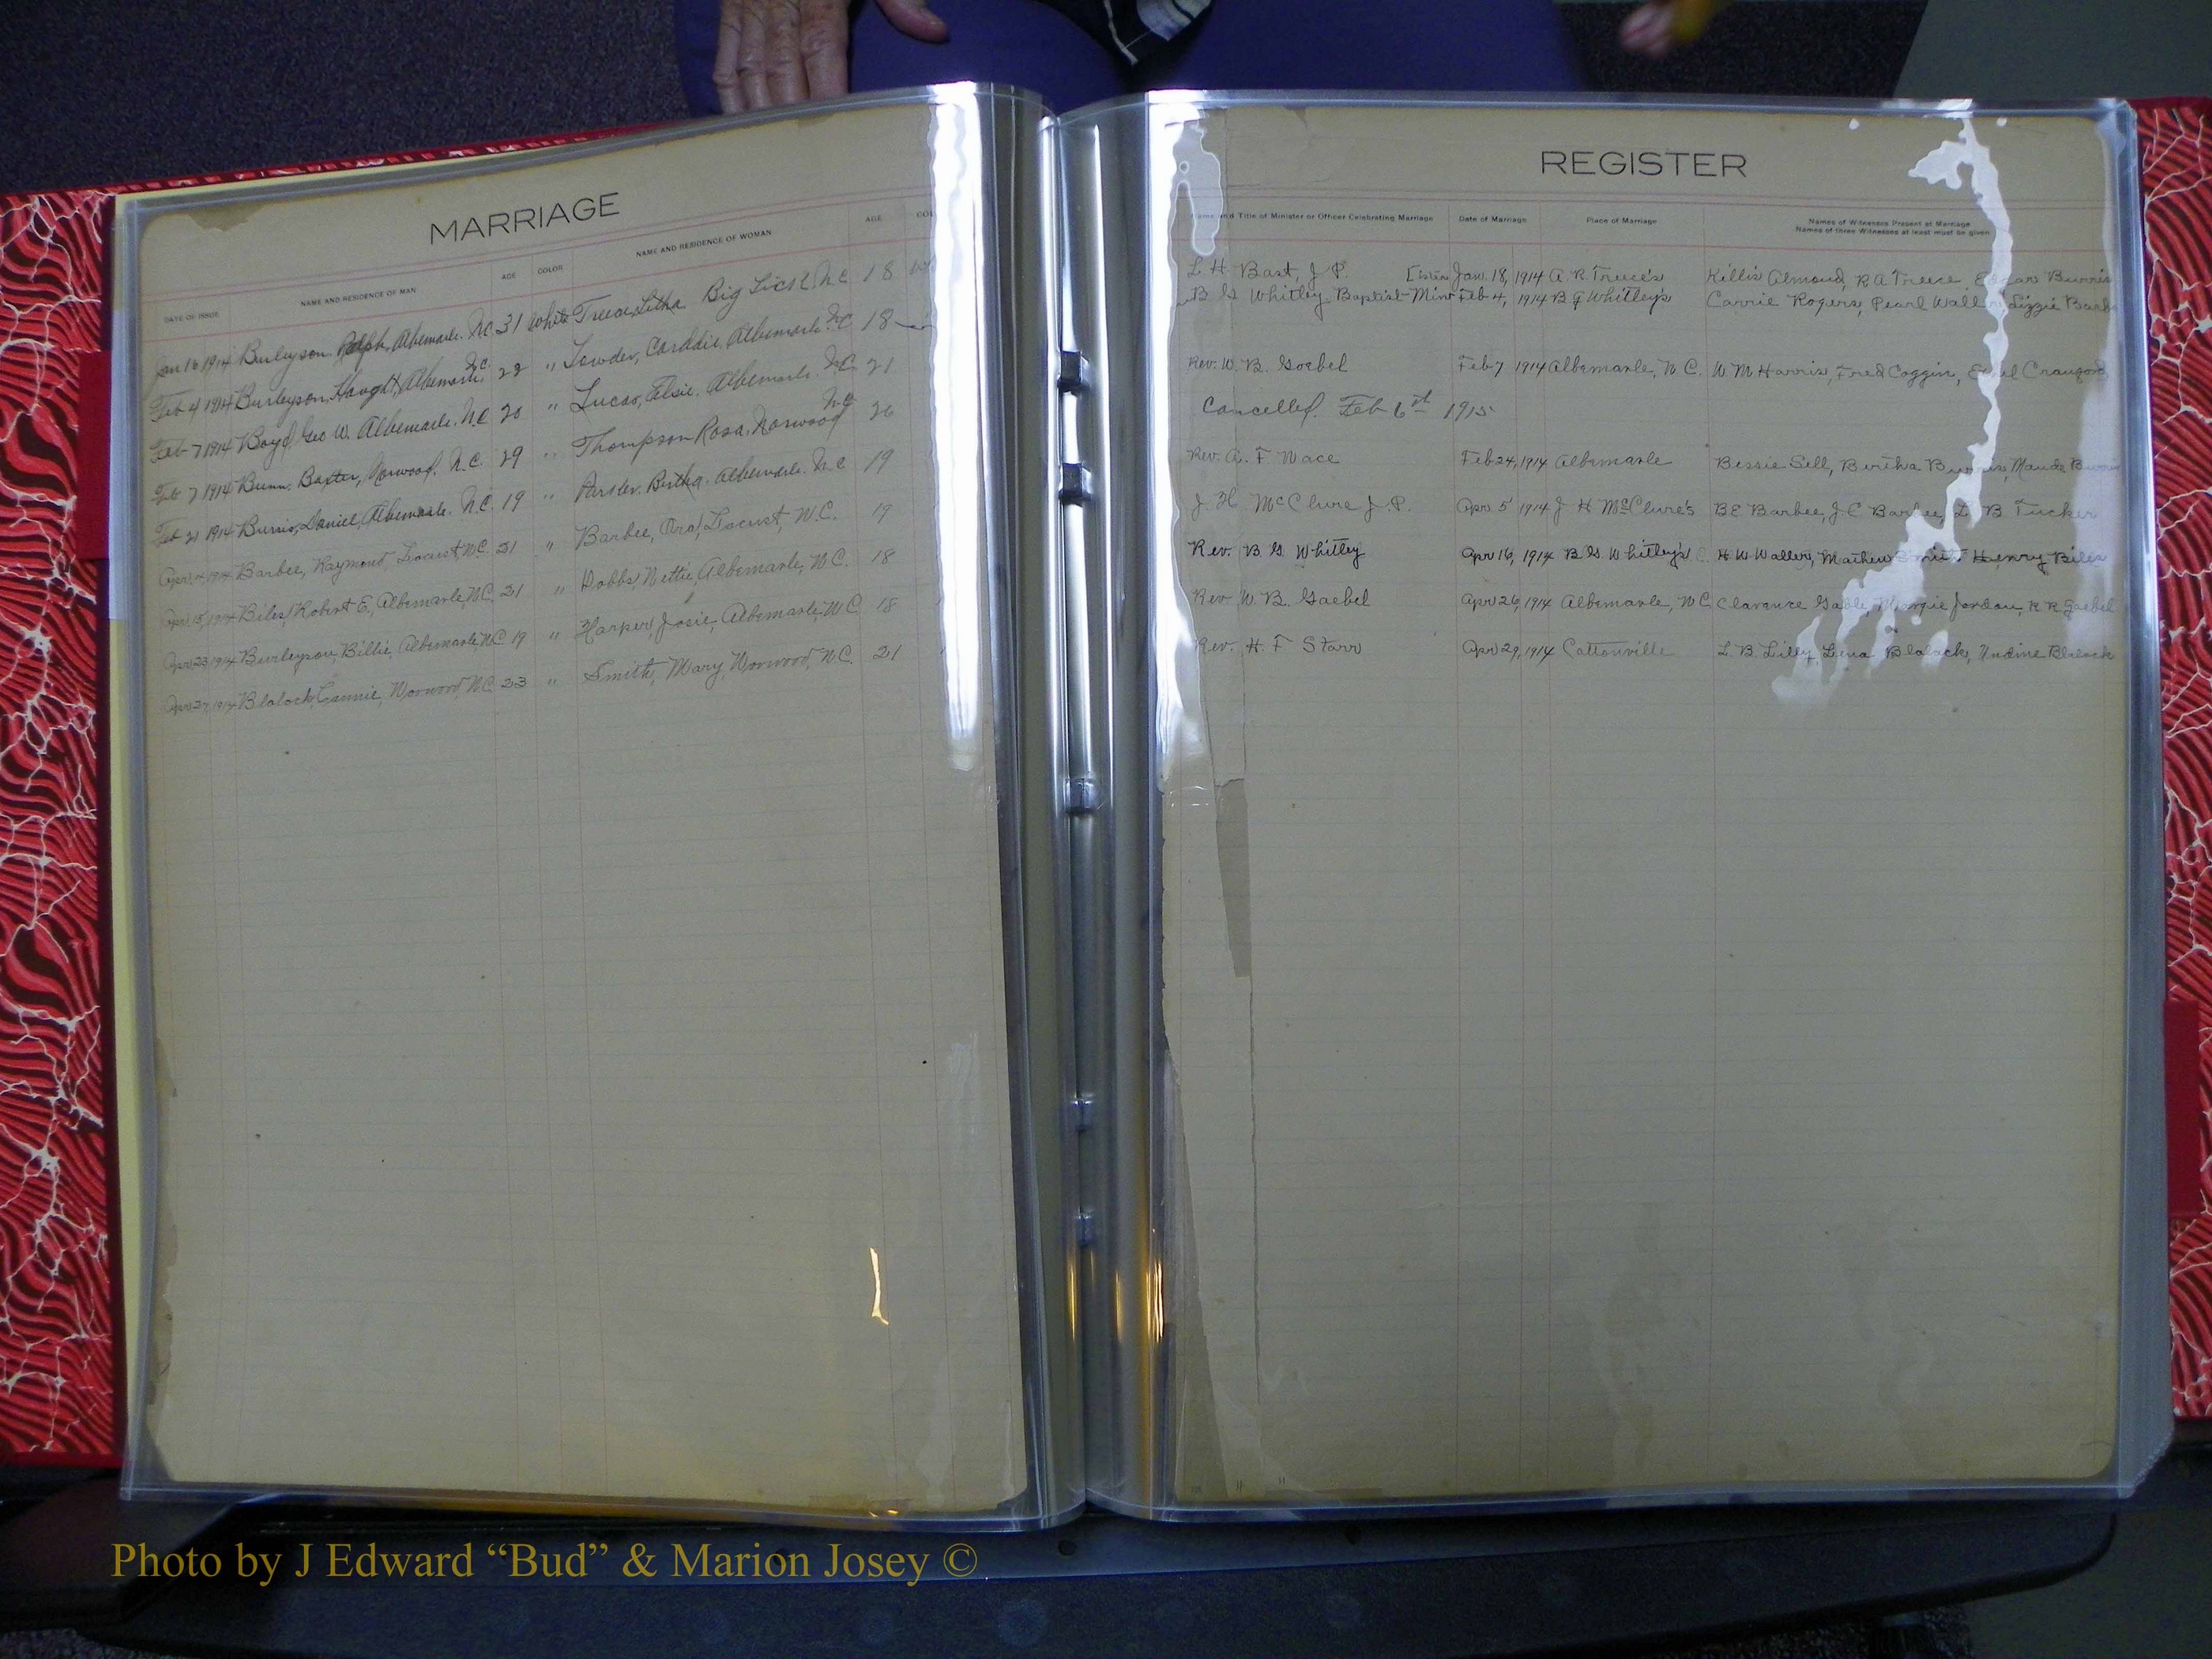 MARRIAGE
DATE OF ISSUE NAME AND RESIDENCE OF MAN AGE COLOR NAME AND RESIDENCE OF WOMAN AGE
Jan 16 1914 Burleyson Ralph, Albemarle. N.C. 31 White Treece, Letha Big Lick N.C 18
Feb 4 1914 Burleyson, Albemarle, N.C. 22 " Lowder, Albemarle. N.C 18
Feb 7 1914 Boyd Geo W. Albemarle. N.C 20 " Lucas, Elsie. Albemarle. N.C 21
Feb 7 1914 Bunn. Baxter, Norwood. N.C. 29 " Thompson Rosa. Norwood N.C 26
Feb 21 1914 Burris, Daniel, Albemarle. N.C. 19 " Bertha. Albemarle. N.C 19
Apr 4 1914 Barbee, Raymond, Locust, N.C. 21 " Barbee, Ora, Locust, N.C. 19
Apr 15, 1914 Biles, Robert E., Albemarle, N.C. 21 " Hobbs, Nettie, Albemarle, N.C. 18
Apr 23, 1914 Burleyson, Billie, Albemarle N.C. 19 " Harper, Josie, Albemarle, N.C. 18
Apr 27, 1914 Blalock, Norwood N.C. 23 " Smith, Mary, Norwood, N.C. 21
REGISTER
Name and Title of Minister or Officer Celebrating Marriage Date of Marriage Place of Marriage Names of Witnesses Present at Marriage
Names of three Witnesses at least must be given
L. H. Bast, J P. Jan. 18, 1914 A. R. Treece's Killis Almond, R A Treece, Edgar Burris
B G Whitley Baptist Feb 4, 1914 B G Whitley's Carrie Rogers, Pearl Lizzie
Rev. W. B. Goebel Feb 7 1914 Albemarle, N C. W. M Harris, Fred Coggin,
Cancelled. Feb 6st 1915
Rev. A. F. Wace Feb 24, 1914 Albemarle Bessie Sell, Bertha Burris, Maude
J. H. McClure J. P. Apr 5 1914 J H McClure's B E Barbee, J C Barbee, L B Tucker
Rev. B G Whitley Apr 16, 1914 B G Whitley's H W Waller, Mathew Smith Henry Biles
Rev. W. B. Gaebel Apr 26, 1914 Albemarle, N.C. Clarence Margie Jordan, R R Gaebel
Rev. H. F Starr Apr 29, 1914 Cottonville L. B. Lilly, Lena Blalock, Undine Blalock
Photo by J Edward “Bud” & Marion Josey ©